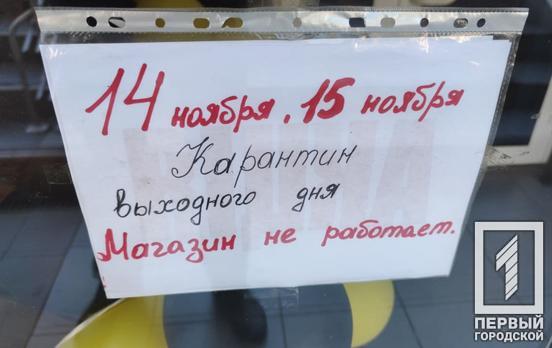 14 ноября, 15 ноября
Карантин
выходного дня
Магазин не работает.
1
ПЕРВЫЙ
ГОРОДСКОЙ